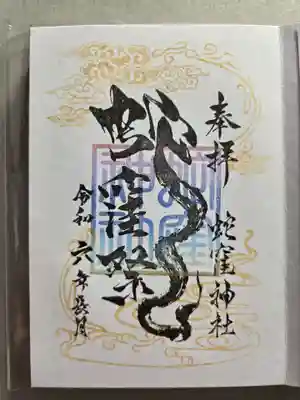 奉拝 蛇窪神社
蛇窪祭
令和六年長月